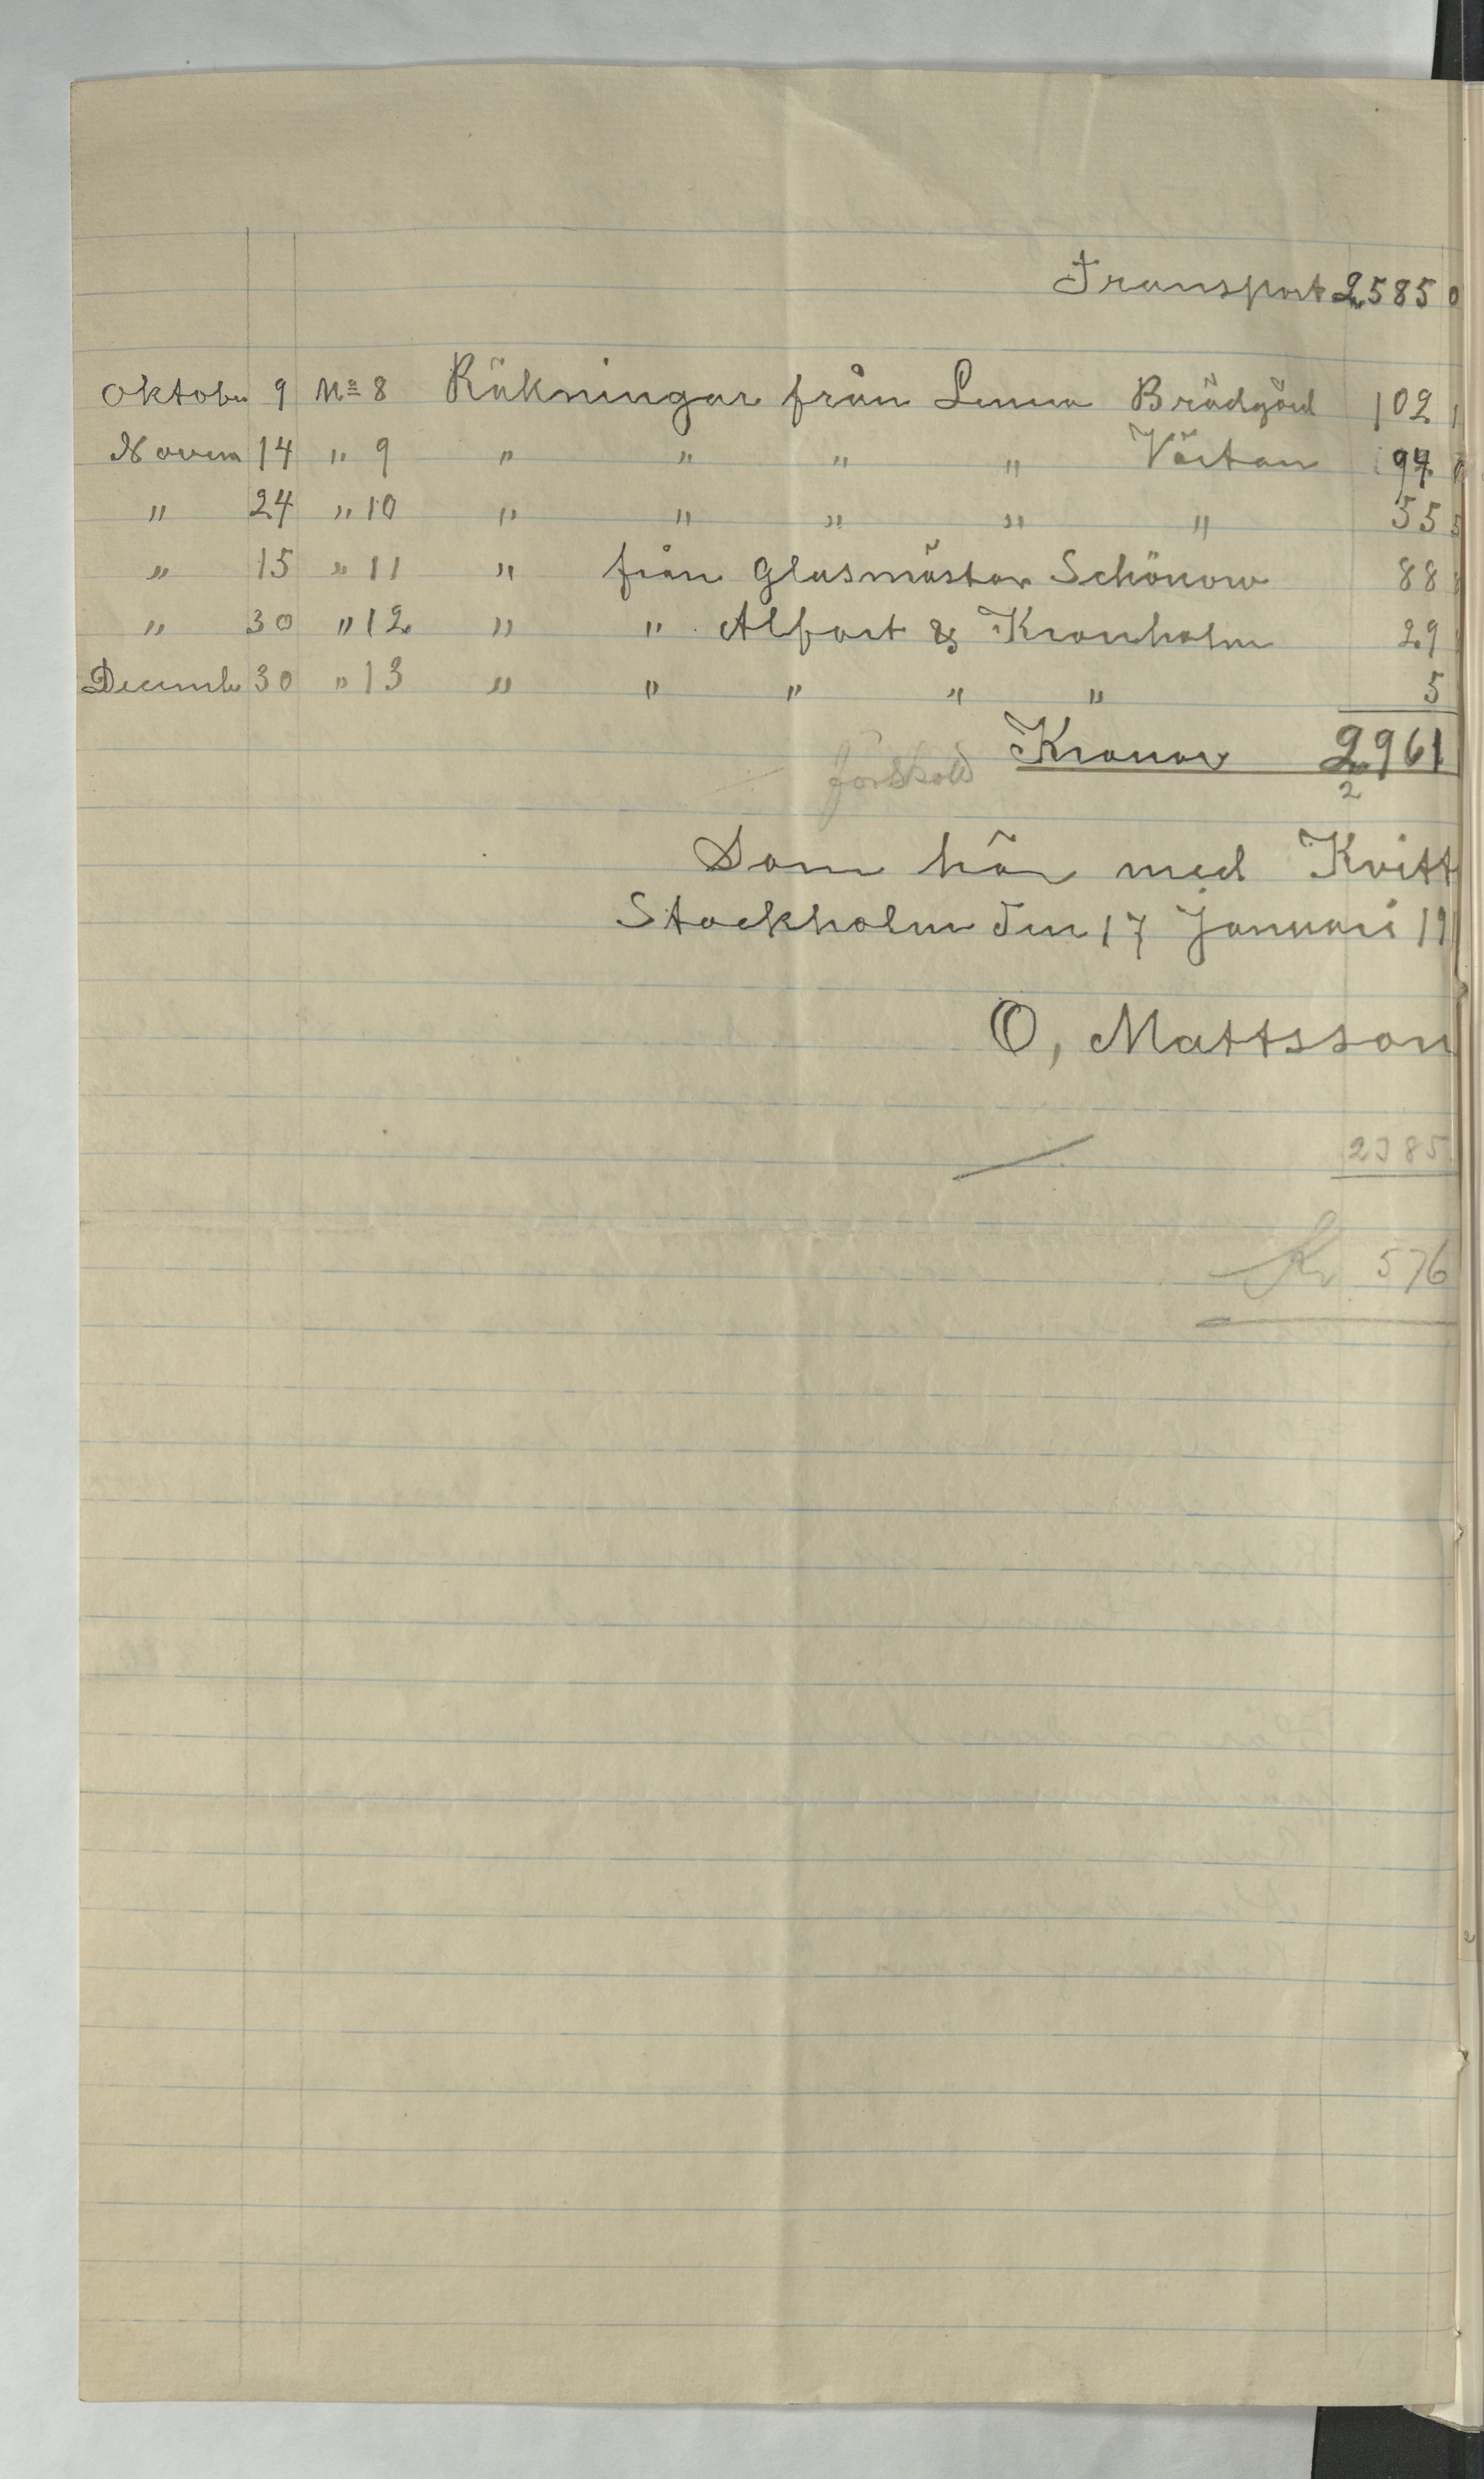 Transport 2585 0
Oktober 9 No 8 Räkningar från Lenna Brädgård 102 1
Novem 14 " 9 " " " " Värtan 94
" 24 " 10 " " " " " 55 5
" 15 " 11 " från Glasmästar Schönow 88
" 30 " 12 " " Alfort & Kronholm 29
Decemb 30 " 13 " " " " " 5
Kronor 2961
förskott 2
Som här med Kvitt
Stockholm den 17 Januari 19
O, Mattsson
2385
Kr 576